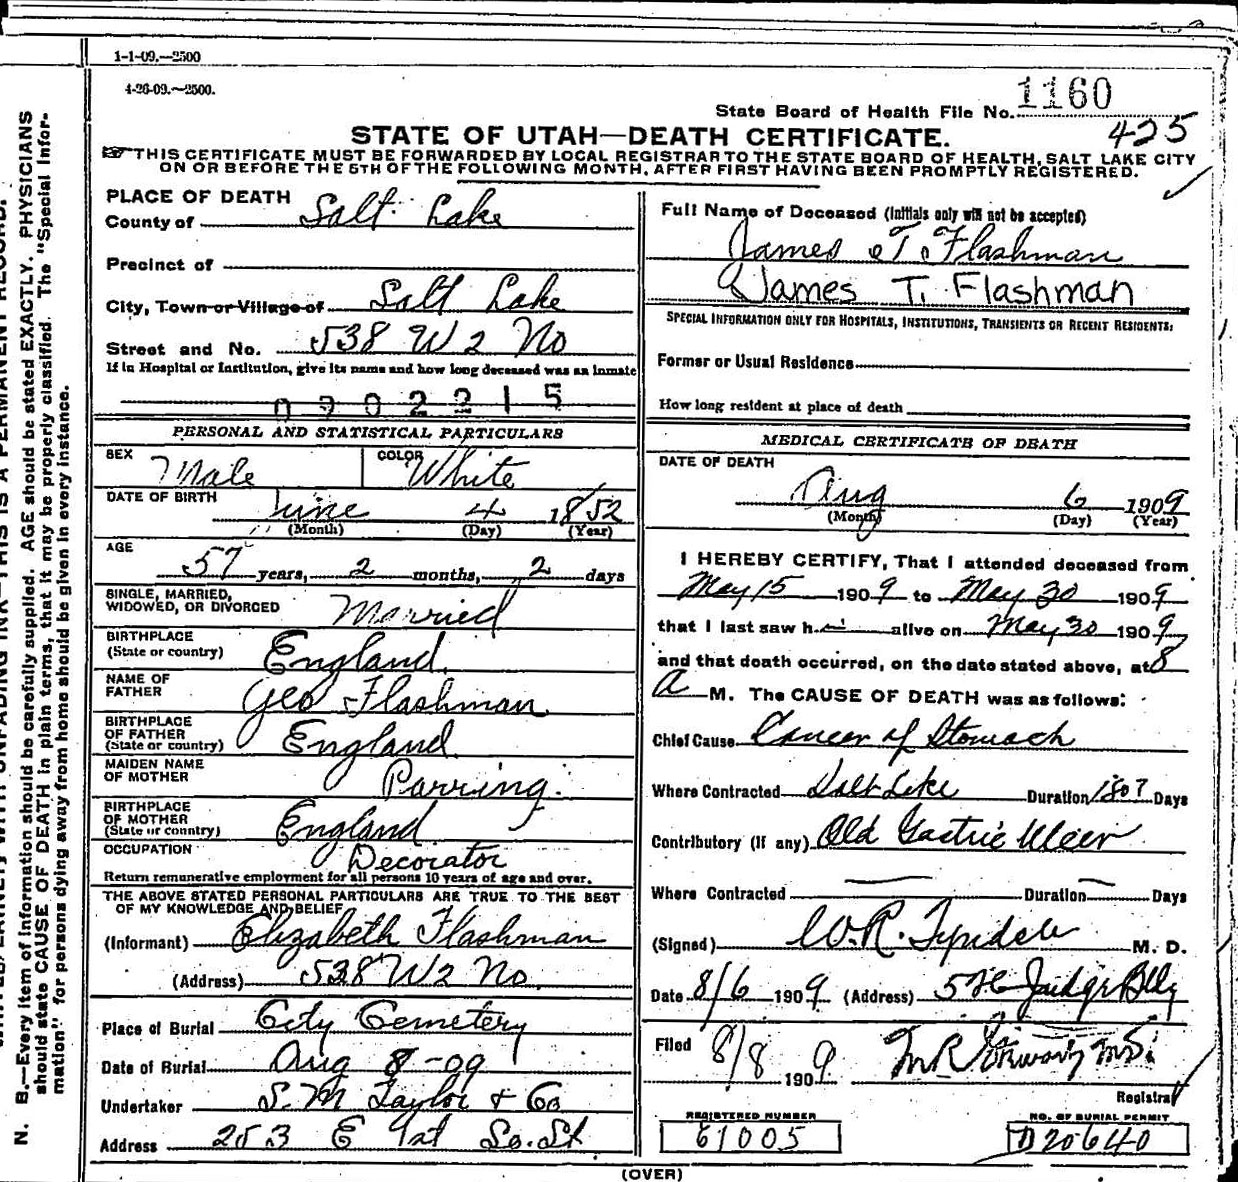 1-1-09.—2500
4-26-09.—2500.
State Board of Health File No. 1160
425
STATE OF UTAH—DEATH CERTIFICATE.
THIS CERTIFICATE MUST BE FORWARDED BY LOCAL REGISTRAR TO THE STATE BOARD OF HEALTH, SALT LAKE CITY
ON OR BEFORE THE 5TH OF THE FOLLOWING MONTH, AFTER FIRST HAVING BEEN PROMPTLY REGISTERED.
PLACE OF DEATH
County of Salt Lake
Precinct of
City, Town or Village of Salt Lake
Street and No. 538 W 2 No
If in Hospital or Institution, give its name and how long deceased was an inmate
0902215
PERSONAL AND STATISTICAL PARTICULARS
SEX Male COLOR White
DATE OF BIRTH June 4 1852
(Month) (Day) (Year)
AGE
57 years, 2 months, 2 days
SINGLE, MARRIED,
WIDOWED, OR DIVORCED Married
BIRTHPLACE
(State or country) England
NAME OF
FATHER Geo Flashman
BIRTHPLACE
OF FATHER
(State or country) England
MAIDEN NAME
OF MOTHER Parring
BIRTHPLACE
OF MOTHER
(State or country) England
OCCUPATION Decorator
Return remunerative employment for all persons 10 years of age and over.
THE ABOVE STATED PERSONAL PARTICULARS ARE TRUE TO THE BEST
OF MY KNOWLEDGE AND BELIEF
(Informant) Elizabeth Flashman
(Address) 538 W 2 No.
Place of Burial City Cemetery
Date of Burial Aug 8-09
Undertaker S. M Taylor & Co
Address 253 E 1st So. St
Full Name of Deceased (Initials only will not be accepted)
James T. Flashman
James T. Flashman
SPECIAL INFORMATION ONLY FOR HOSPITALS, INSTITUTIONS, TRANSIENTS OR RECENT RESIDENTS:
Former or Usual Residence
How long resident at place of death
MEDICAL CERTIFICATE OF DEATH
DATE OF DEATH
Aug 6 1909
(Month) (Day) (Year)
I HEREBY CERTIFY, That I attended deceased from
May 15 1909 to May 30 1909
that I last saw h im alive on May 30 1909
and that death occurred, on the date stated above, at 8
A M. The CAUSE OF DEATH was as follows:
Chief Cause Cancer of Stomach
Where Contracted Salt Lake Duration 180? Days
Contributory (if any) Old Gastric Ulcer
Where Contracted Duration Days
(Signed) W. R. Tyndale M. D.
Date 8/6 1909 (Address) Judge Bldg
Filed 8/8 1909
Registrar
REGISTERED NUMBER
61005
NO. OF BURIAL PERMIT
D20640
(OVER)
N. B.—Every item of information should be carefully supplied. AGE should be stated EXACTLY. PHYSICIANS
should state CAUSE OF DEATH in plain terms, that it may be properly classified. The "Special Infor-
mation" for persons dying away from home should be given in every instance.